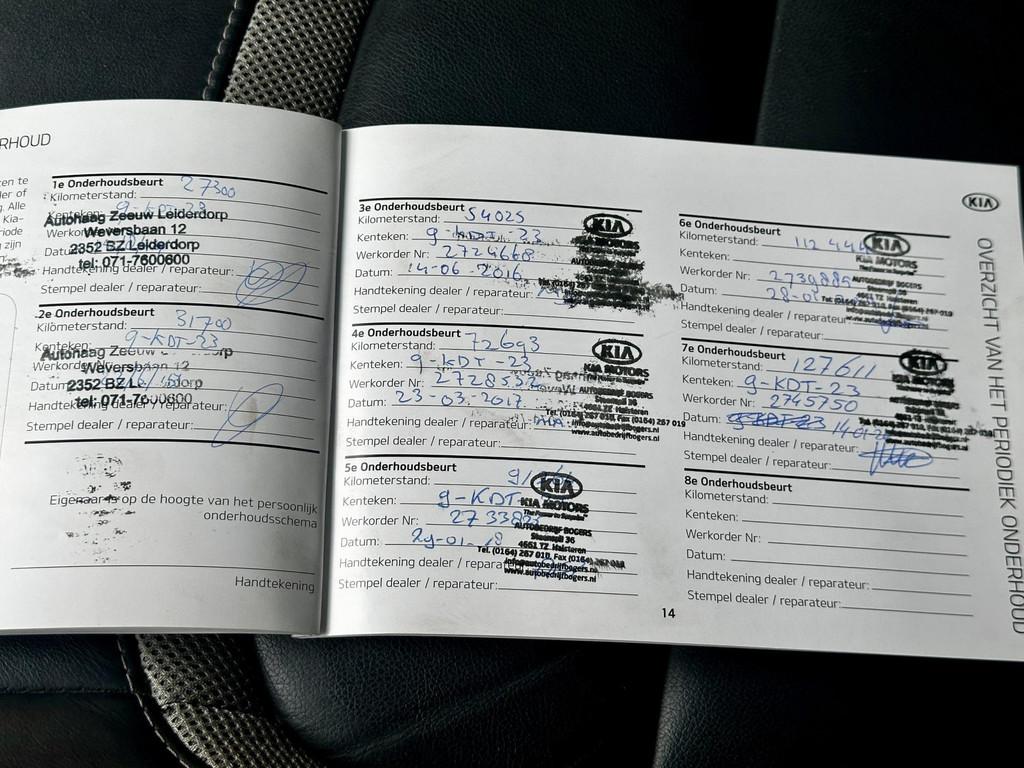 RHOUD
en te
er of
. Alle
Kia-
riode
zijn
1e Onderhoudsbeurt
Kilometerstand: 27300
Kenteken: 9-KDT-23
Autohaag Zeeuw Leiderdorp
Weversbaan 12
2352 BZ Leiderdorp
tel: 071-7600600
Handtekening dealer / reparateur:
Stempel dealer / reparateur:
2e Onderhoudsbeurt
Kilometerstand: 31700
Kenteken: 9-KDT-23
Autohaag Zeeuw
Weversbaan 12
2352 BZ
tel: 071-7600600
Handtekening dealer / reparateur:
Stempel dealer / reparateur:
Eigenaar is op de hoogte van het persoonlijk
onderhoudsschema
Handtekening
3e Onderhoudsbeurt
Kilometerstand: 54025
Kenteken: 9-KDT-23
Werkorder Nr: 2724668
Datum: 14-06-2016
Handtekening dealer / reparateur:
Stempel dealer / reparateur:
KIA
KIA MOTORS
4e Onderhoudsbeurt
Kilometerstand: 72693
Kenteken: 9-KDT-23
Werkorder Nr:
Datum: 23-03-2017
Handtekening dealer / reparateur:
Stempel dealer / reparateur:
KIA
KIA MOTORS
AUTOBEDRIJF BOGERS
4661 TZ Halsteren
info@autobedrijfbogers.nl
www.autobedrijfbogers.nl
5e Onderhoudsbeurt
Kilometerstand:
Kenteken: 9-KDT
Werkorder Nr:
Datum: 29-01-18
Handtekening dealer / reparateur:
Stempel dealer / reparateur:
KIA
KIA MOTORS
The Power to Surprise
AUTOBEDRIJF BOGERS
Steenspil 36
4661 TZ Halsteren
Tel. (0164) 267 010, Fax (0164) 267 019
info@autobedrijfbogers.nl
www.autobedrijfbogers.nl
14
KIA
6e Onderhoudsbeurt
Kilometerstand: 112 444
Kenteken:
Werkorder Nr: 2739885
Datum:
Handtekening dealer / reparateur:
Stempel dealer / reparateur:
KIA
KIA MOTORS
The Power to Surprise
AUTOBEDRIJF BOGERS
4661 TZ Halsteren
7e Onderhoudsbeurt
Kilometerstand: 127611
Kenteken: 9-KDT-23
Werkorder Nr: 2745750
Datum:
Handtekening dealer / reparateur:
Stempel dealer / reparateur:
KIA
8e Onderhoudsbeurt
Kilometerstand:
Kenteken:
Werkorder Nr:
Datum:
Handtekening dealer / reparateur:
Stempel dealer / reparateur:
OVERZICHT VAN HET PERIODIEK ONDERHOUD